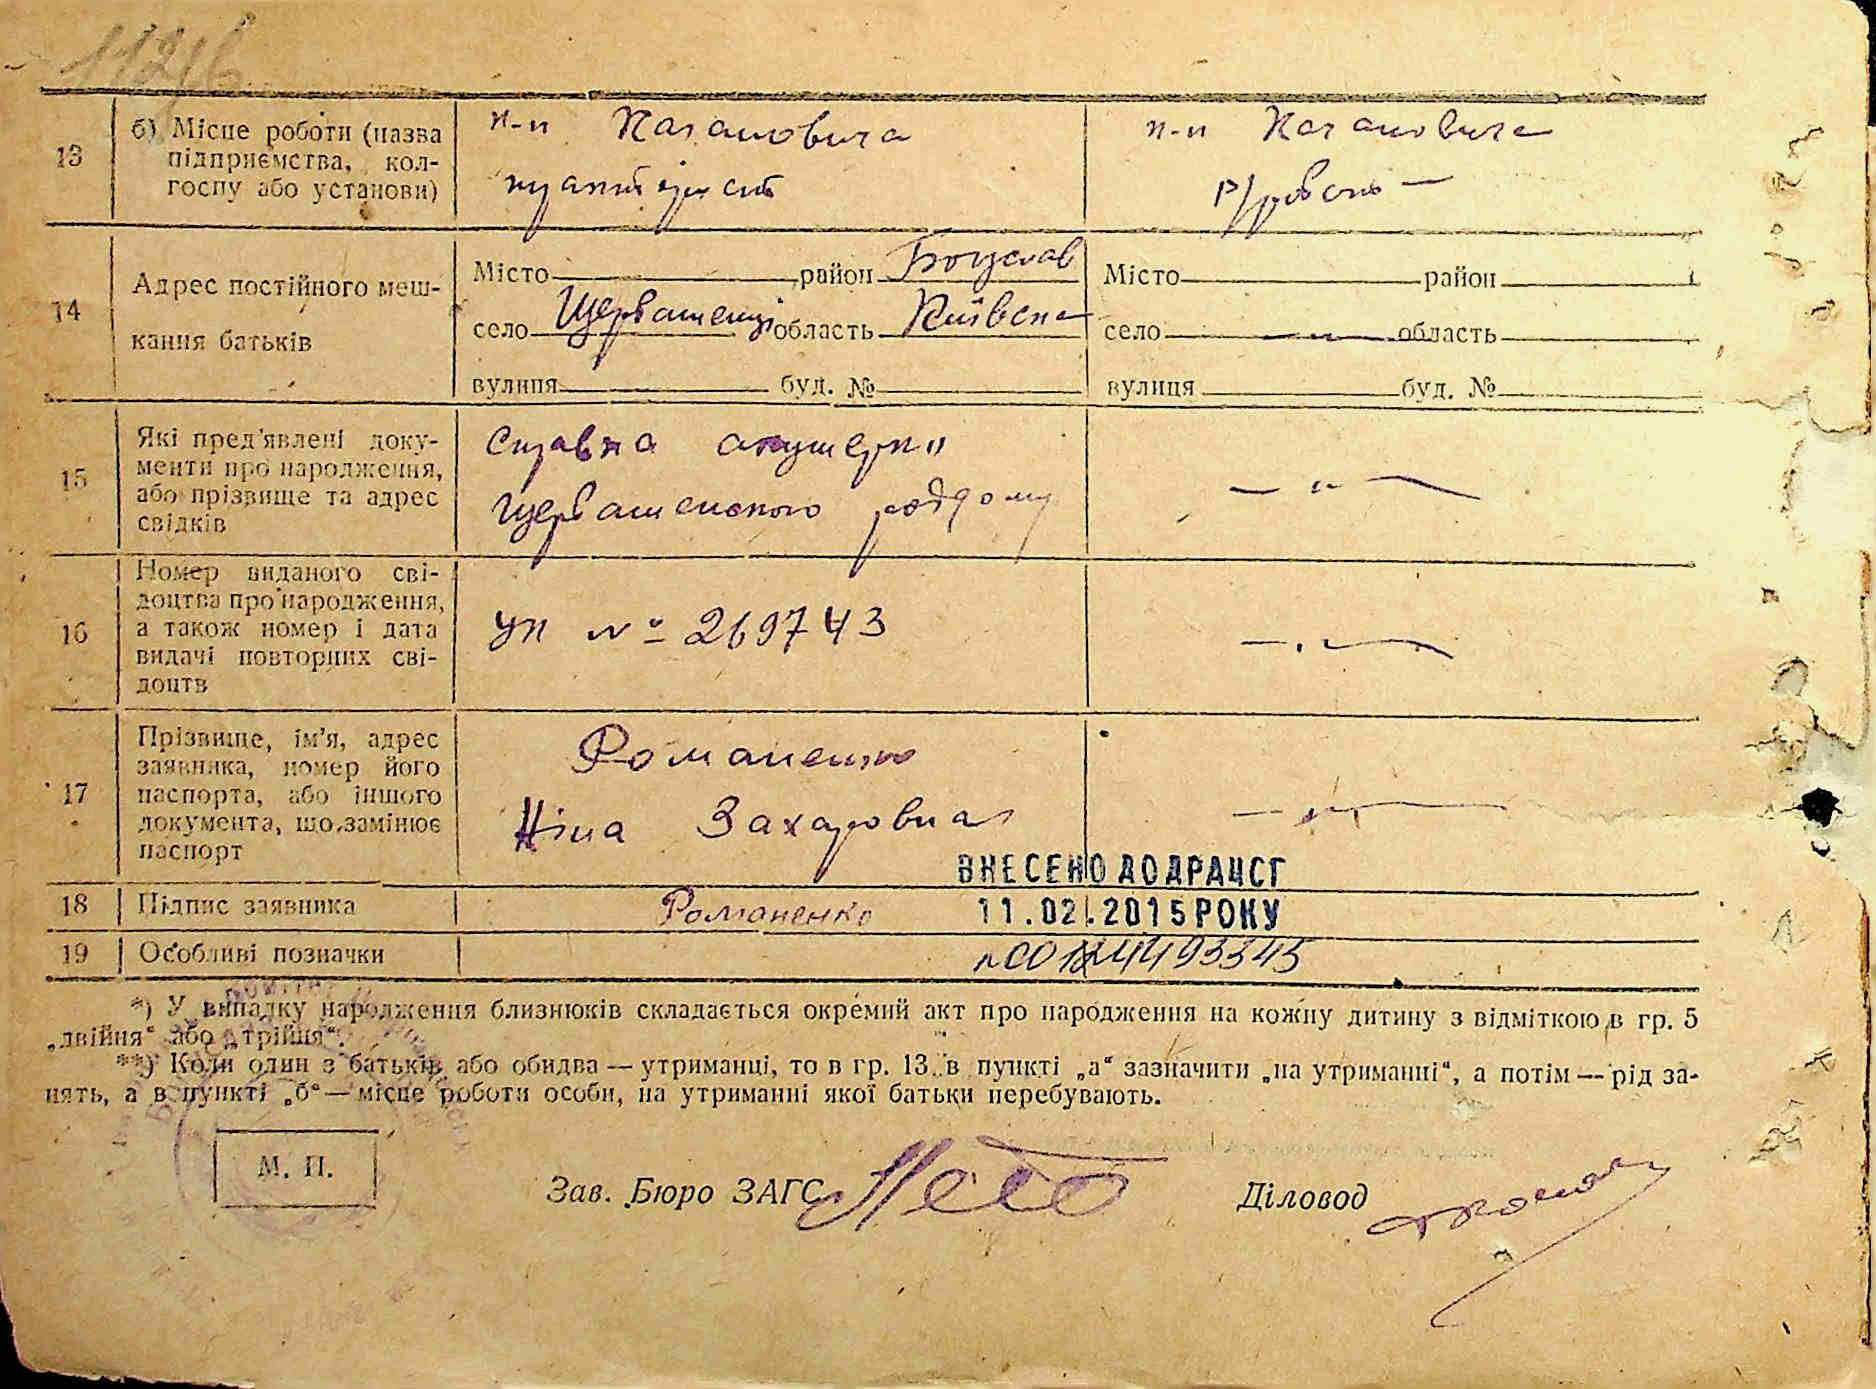 13
б) Місце роботи (назва
підприємства, кол-
госпу або установи)
к-п Кагановича
к-п Кагановича
14
Адрес постійного меш-
кання батьків
Місто район Богуслав
село Щербашенці область Київська
вулиця буд. №
Місто район
село —„— область
вулиця буд. №
15
Які пред'явлені доку-
менти про народження,
або прізвище та адрес
свідків
Справка акушерки
Щербашенского роддому
—„—
16
Номер виданого сві-
доцтва про народження,
а також номер і дата
видачі повторних сві-
доцтв
УК № 269743
—„—
17
Прізвище, ім'я, адрес
заявника, номер його
паспорта, або іншого
документа, що замінює
паспорт
Романенко
Ніна Захаровна
—„—
ВНЕСЕНО ДО ДРАЦСГ
18
Підпис заявника
Романенко
11.02.2015 РОКУ
19
Особливі позначки
*) У випадку народження близнюків складається окремий акт про народження на кожну дитину з відміткою в гр. 5
„двійня“ або „трійня“.
**) Коли один з батьків або обидва — утриманці, то в гр. 13 в пункті „а“ зазначити „на утриманні“, а потім — рід за-
нять, а в пункті „б“ — місце роботи особи, на утриманні якої батьки перебувають.
М. П.
Зав. Бюро ЗАГС
Діловод